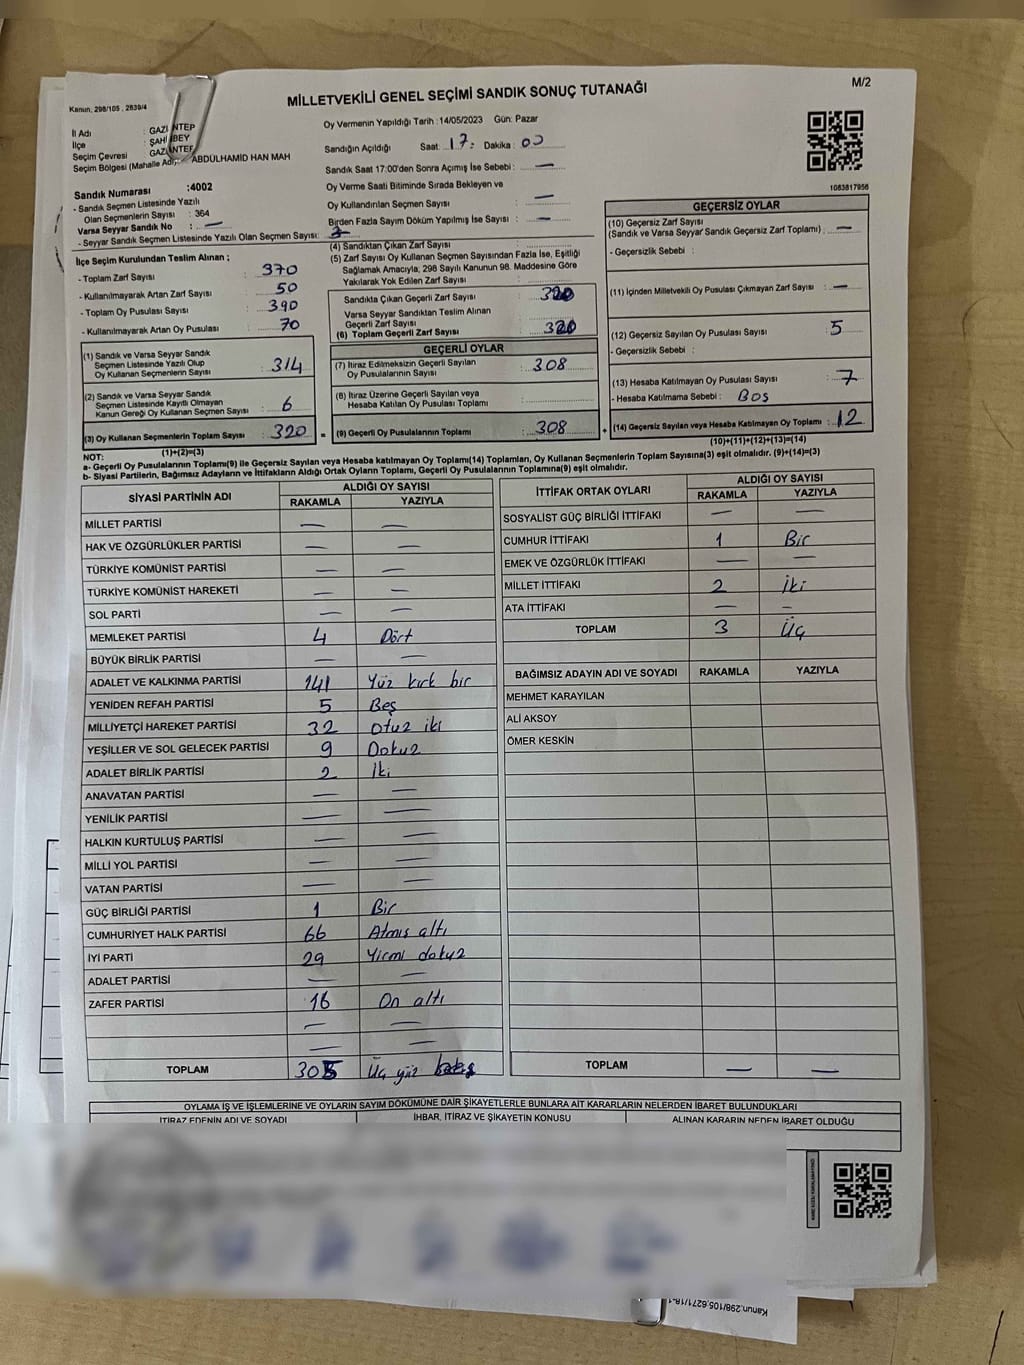 Kanun, 298/105 , 2839/4
MİLLETVEKİLİ GENEL SEÇİMİ SANDIK SONUÇ TUTANAĞI
M/2
İl Adı : GAZİANTEP
İlçe : ŞAHİNBEY
Seçim Çevresi : GAZİANTEP
Seçim Bölgesi (Mahalle Adı): ABDÜLHAMİD HAN MAH
Sandık Numarası :4002
- Sandık Seçmen Listesinde Yazılı
Olan Seçmenlerin Sayısı : 364
Varsa Seyyar Sandık No : —
- Seyyar Sandık Seçmen Listesinde Yazılı Olan Seçmen Sayısı:
Oy Vermenin Yapıldığı Tarih :14/05/2023 Gün: Pazar
Sandığın Açıldığı Saat: 17: Dakika: 00
Sandık Saat 17:00'den Sonra Açımış İse Sebebi : —
Oy Verme Saati Bitiminde Sırada Bekleyen ve
Oy Kullandırılan Seçmen Sayısı —
Birden Fazla Sayım Döküm Yapılmış İse Sayısı : —
1083817956
İlçe Seçim Kurulundan Teslim Alınan ;
- Toplam Zarf Sayısı 370
- Kullanılmayarak Artan Zarf Sayısı 50
- Toplam Oy Pusulası Sayısı : 390
- Kullanılmayarak Artan Oy Pusulası : 70
(1) Sandık ve Varsa Seyyar Sandık
Seçmen Listesinde Yazılı Olup
Oy Kullanan Seçmenlerin Sayısı : 314
(2) Sandık ve Varsa Seyyar Sandık
Seçmen Listesinde Kayıtlı Olmayan
Kanun Gereği Oy Kullanan Seçmen Sayısı : 6
(3) Oy Kullanan Seçmenlerin Toplam Sayısı : 320
(1)+(2)=(3)
(4) Sandıktan Çıkan Zarf Sayısı
(5) Zarf Sayısı Oy Kullanan Seçmen Sayısından Fazla İse, Eşitliği
Sağlamak Amacıyla, 298 Sayılı Kanunun 98. Maddesine Göre
Yakılarak Yok Edilen Zarf Sayısı :
Sandıkta Çıkan Geçerli Zarf Sayısı : 320
Varsa Seyyar Sandıktan Teslim Alınan
Geçerli Zarf Sayısı
(6) Toplam Geçerli Zarf Sayısı : 320
GEÇERLİ OYLAR
(7) İtiraz Edilmeksizin Geçerli Sayılan
Oy Pusulalarının Sayısı : 308
(8) İtiraz Üzerine Geçerli Sayılan veya
Hesaba Katılan Oy Pusulası Toplamı :
= (9) Geçerli Oy Pusulalarının Toplamı : 308
GEÇERSİZ OYLAR
(10) Geçersiz Zarf Sayısı
(Sandık ve Varsa Seyyar Sandık Geçersiz Zarf Toplamı) : —
- Geçersizlik Sebebi :
(11) İçinden Milletvekili Oy Pusulası Çıkmayan Zarf Sayısı : —
(12) Geçersiz Sayılan Oy Pusulası Sayısı : 5
- Geçersizlik Sebebi :
(13) Hesaba Katılmayan Oy Pusulası Sayısı : 7
- Hesaba Katılmama Sebebi : BOŞ
+ (14) Geçersiz Sayılan veya Hesaba Katılmayan Oy Toplamı : 12
(10)+(11)+(12)+(13)=(14)
NOT:
a- Geçerli Oy Pusulalarının Toplamı(9) ile Geçersiz Sayılan veya Hesaba Katılmayan Oy Toplamı(14) Toplamları, Oy Kullanan Seçmenlerin Toplam Sayısına(3) eşit olmalıdır. (9)+(14)=(3)
b- Siyasi Partilerin, Bağımsız Adayların ve İttifakların Aldığı Ortak Oyların Toplamı, Geçerli Oy Pusulalarının Toplamına(9) eşit olmalıdır.
SİYASİ PARTİNİN ADI ALDIĞI OY SAYISI
RAKAMLA YAZIYLA
MİLLET PARTİSİ — —
HAK VE ÖZGÜRLÜKLER PARTİSİ — —
TÜRKİYE KOMÜNİST PARTİSİ — —
TÜRKİYE KOMÜNİST HAREKETİ — —
SOL PARTİ — —
MEMLEKET PARTİSİ 4 Dört
BÜYÜK BİRLİK PARTİSİ — —
ADALET VE KALKINMA PARTİSİ 141 Yüz kırk bir
YENİDEN REFAH PARTİSİ 5 Beş
MİLLİYETÇİ HAREKET PARTİSİ 32 Otuz iki
YEŞİLLER VE SOL GELECEK PARTİSİ 9 Dokuz
ADALET BİRLİK PARTİSİ 2 İki
ANAVATAN PARTİSİ — —
YENİLİK PARTİSİ — —
HALKIN KURTULUŞ PARTİSİ — —
MİLLİ YOL PARTİSİ — —
VATAN PARTİSİ — —
GÜÇ BİRLİĞİ PARTİSİ 1 Bir
CUMHURİYET HALK PARTİSİ 66 Atmış altı
İYİ PARTİ 29 Yirmi dokuz
ADALET PARTİSİ — —
ZAFER PARTİSİ 16 On altı
— —
— —
TOPLAM 305 Üç yüz
İTTİFAK ORTAK OYLARI ALDIĞI OY SAYISI
RAKAMLA YAZIYLA
SOSYALİST GÜÇ BİRLİĞİ İTTİFAKI — —
CUMHUR İTTİFAKI 1 Bir
EMEK VE ÖZGÜRLÜK İTTİFAKI — —
MİLLET İTTİFAKI 2 İki
ATA İTTİFAKI — —
TOPLAM 3 Üç
BAĞIMSIZ ADAYIN ADI VE SOYADI RAKAMLA YAZIYLA
MEHMET KARAYILAN
ALİ AKSOY
ÖMER KESKİN
TOPLAM — —
OYLAMA İŞ VE İŞLEMLERİNE VE OYLARIN SAYIM DÖKÜMÜNE DAİR ŞİKAYETLERLE BUNLARA AİT KARARLARIN NELERDEN İBARET BULUNDUKLARI
İTİRAZ EDENİN ADI VE SOYADI İHBAR, İTİRAZ VE ŞİKAYETİN KONUSU ALINAN KARARIN NEDEN İBARET OLDUĞU
Kanun.298/105,627/1/18-1